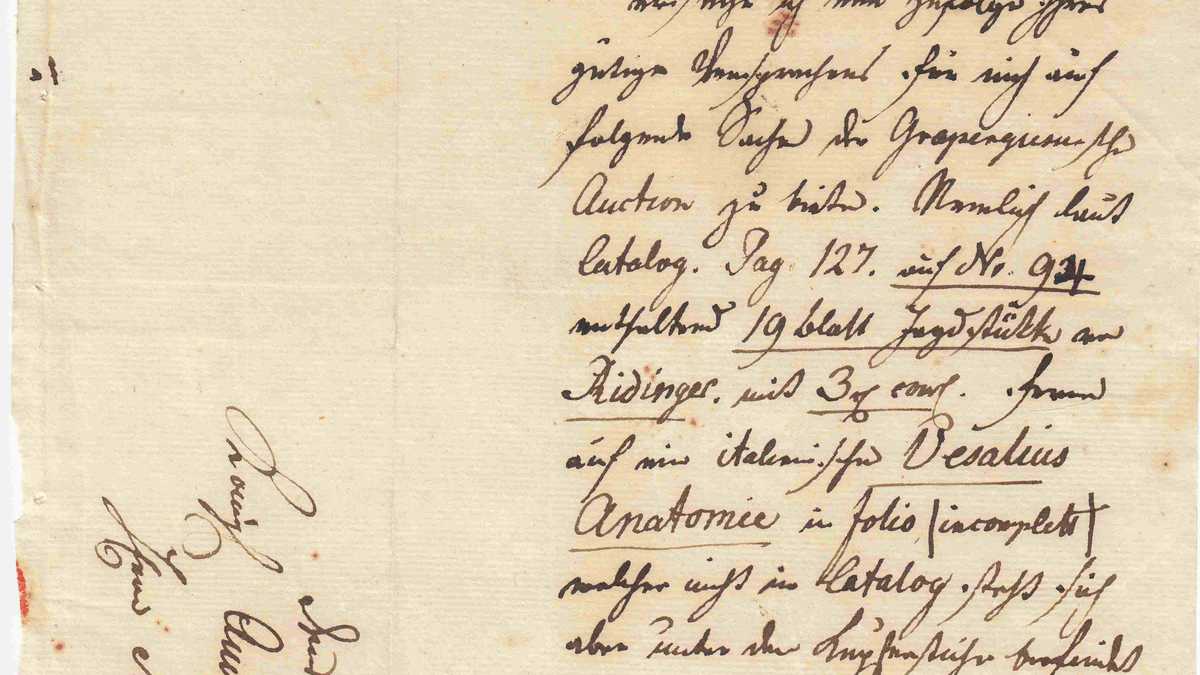 ersuche ich nun zufolge Ihres
gütigen Versprechens für mich auf
folgende Sache der Gräpengiesersche
Auction zu bieten. Nemlich laut
Catalog. Pag 127. auf No. 94
enthaltend 19 blatt Jagdstükke von
Ridinger. mit 3 rh cour. ferner
auf ein italienische Vesalius
Anatomie in folio (incomplett)
welcher nicht im Catalog steht sich
aber unter den Kupferstiche befindet
Herrn
Königl